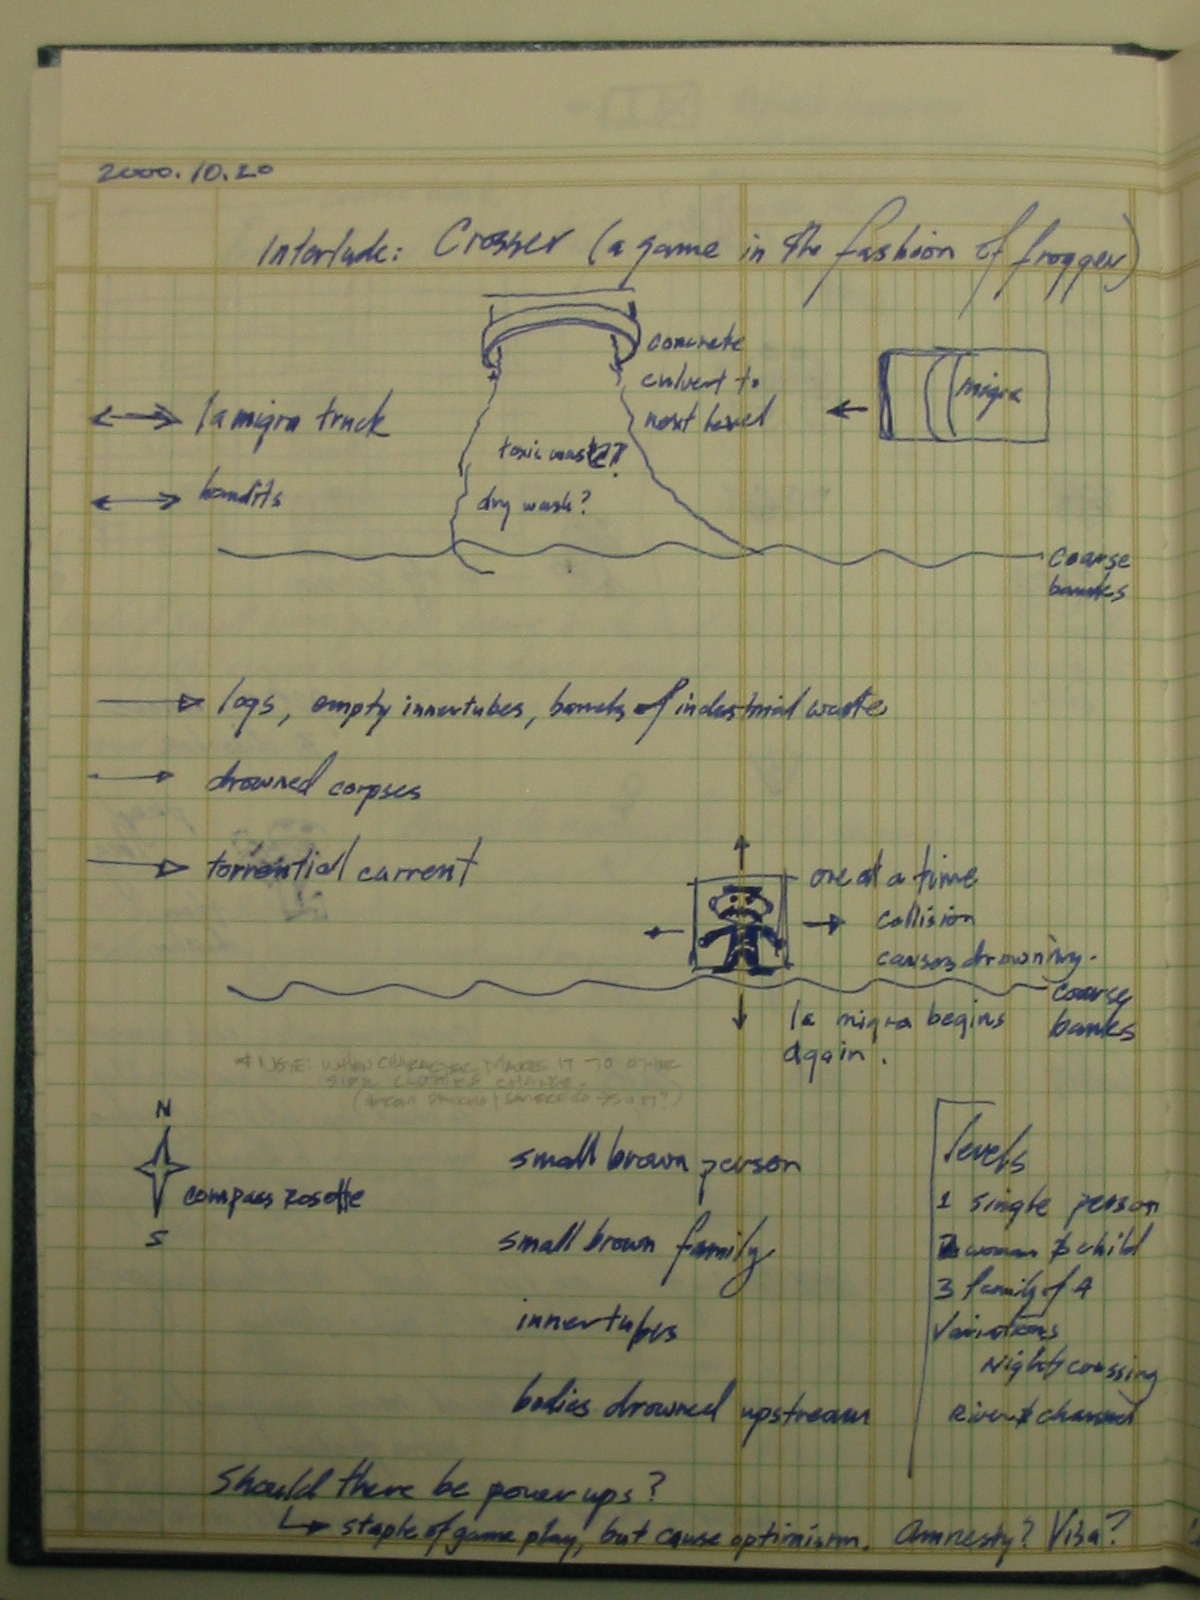 2000.10.20
Interlude: Crosser (a game in the fashion of frogger)
concrete
culvert to
next level
migra
la migra truck
toxic waste?
bandits
dry wash?
coarse
banks
logs, empty innertubes, barrels of industrial waste
drowned corpses
torrential current
one at a time
collision
causes drowning.
coarse
banks
la migra begins
again.
*NOTE: WHEN CHARACTER MAKES IT TO OTHER
SIDE CLOTHES CHANGE.
N
compass rosette
S
small brown person
small brown family
innertubes
bodies drowned upstream
levels
1 single person
2 woman & child
3 family of 4
Variations
Night crossing
River & channel
Should there be power ups?
staple of game play, but cause optimism. Amnesty? Visa?